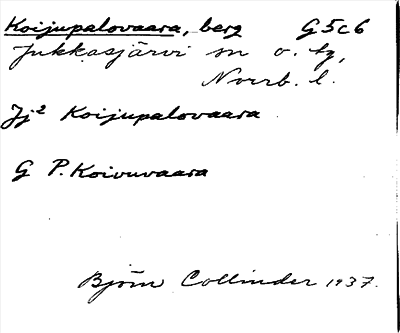 Koijupalovaara, berg G5c6
Jukkasjärvi sn o. tg,
Norrb. l.
Jj² Koijupalovaara
G P. Koivuvaara
Björn Collinder 1937.